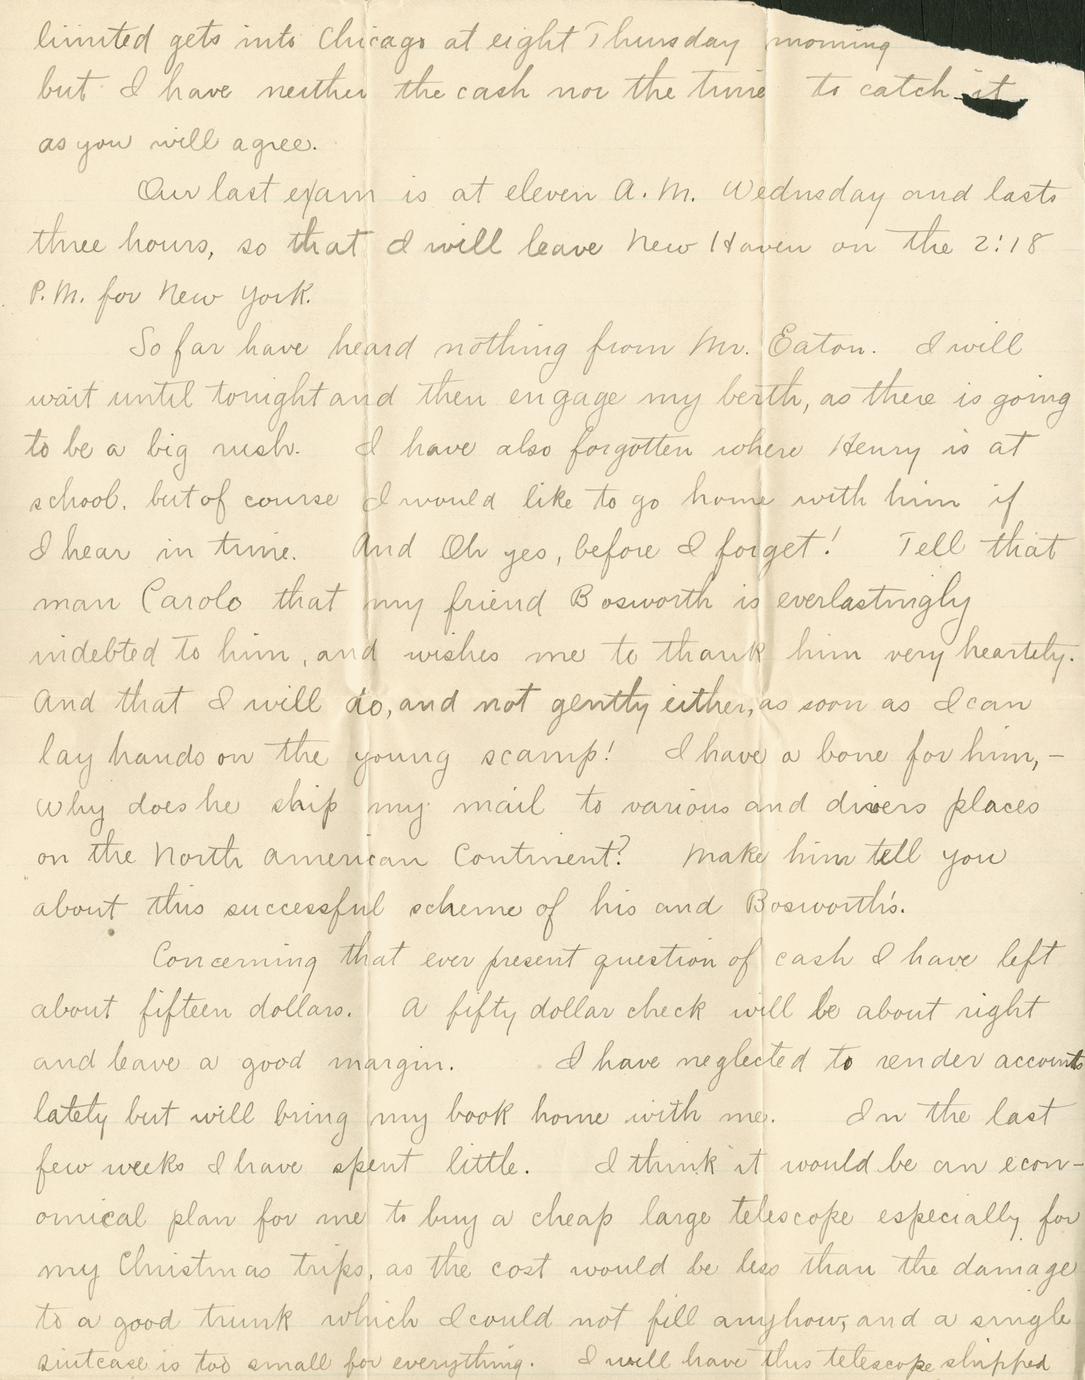 limited gets into Chicago at eight Thursday morning
but I have neither the cash nor the time to catch it
as you will agree.
Our last exam is at eleven A.M. Wednesday and lasts
three hours, so that I will leave New Haven on the 2:18
P.M. for New York.
So far have heard nothing from Mr. Eaton. I will
wait until tonight and then engage my berth, as there is going
to be a big rush. I have also forgotten where Henry is at
school. but of course I would like to go home with him if
I hear in time. And Oh yes, before I forget! Tell that
man Carolo that my friend Bosworth is everlastingly
indebted to him, and wishes me to thank him very heartely.
And that I will do, and not gently either, as soon as I can
lay hands on the young scamp! I have a bone for him, –
Why does he ship my mail to various and divers places
on the North American Continent? Make him tell you
about this successful scheme of his and Bosworth's.
Concerning that ever present question of cash I have left
about fifteen dollars. A fifty dollar check will be about right
and leave a good margin. I have neglected to render accounts
lately but will bring my book home with me. In the last
few weeks I have spent little. I think it would be an econ-
omical plan for me to buy a cheap large telescope especially for
my Christmas trips, as the cost would be less than the damage
to a good trunk which I could not fill anyhow, and a single
suitcase is too small for everything. I will have this telescope shipped